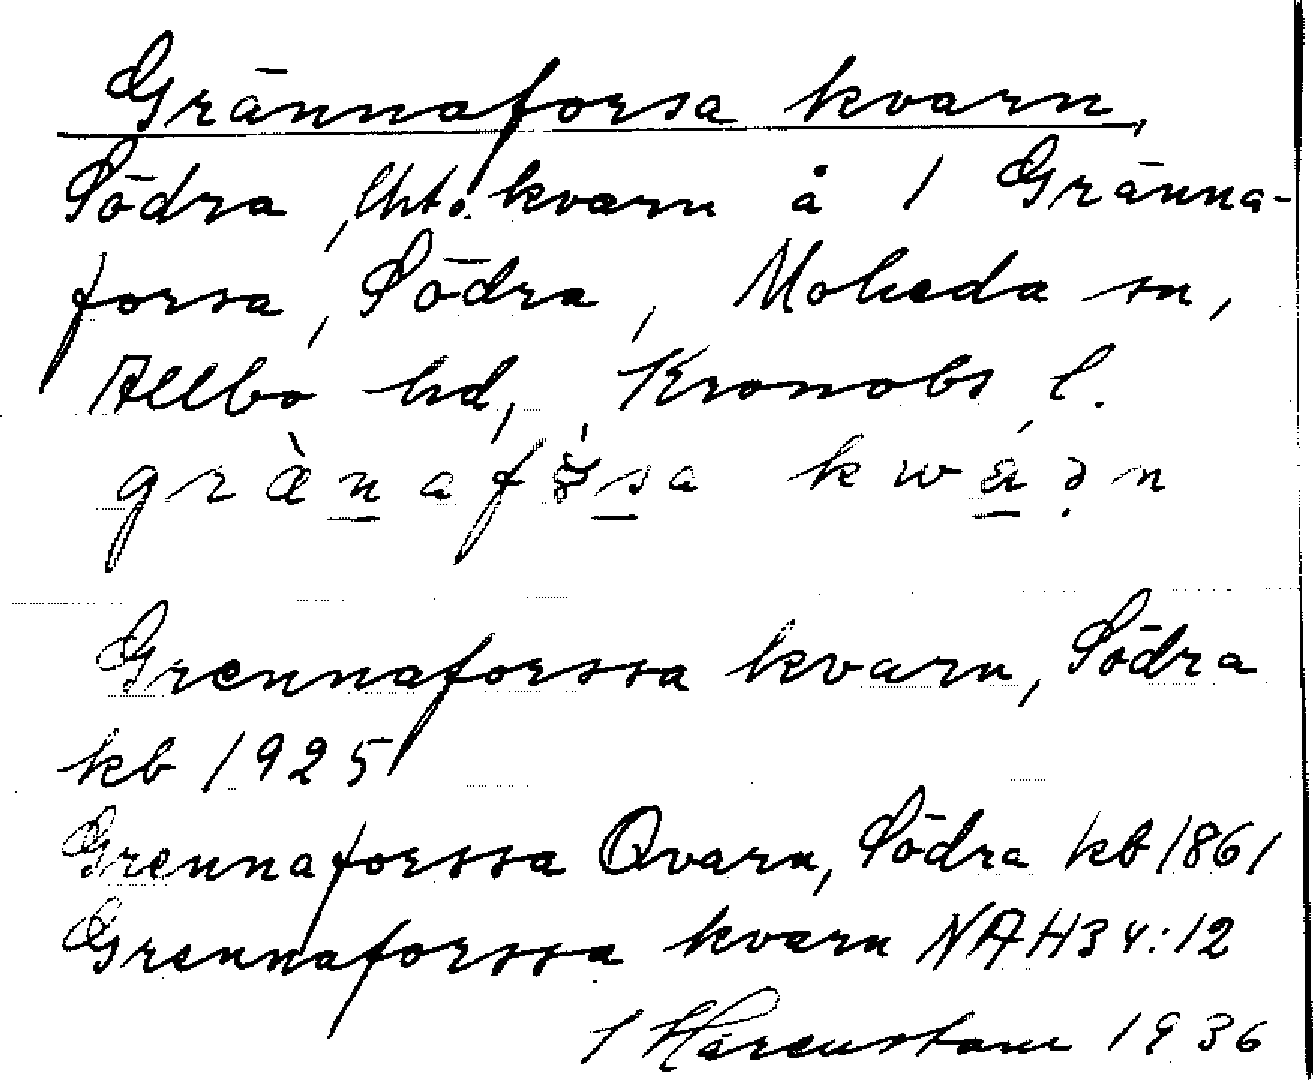 Grännaforsa kvarn,
Södra, lht. kvarn å 1 Gränna-
forsa, Södra, Moheda sn,
Allbo hd, Kronobs l.
Grennaforssa kvarn, Södra
kb 1925
Grennaforssa Qvarn, Södra kb 1861
Grennaforssa kvarn NAH34:12
1936